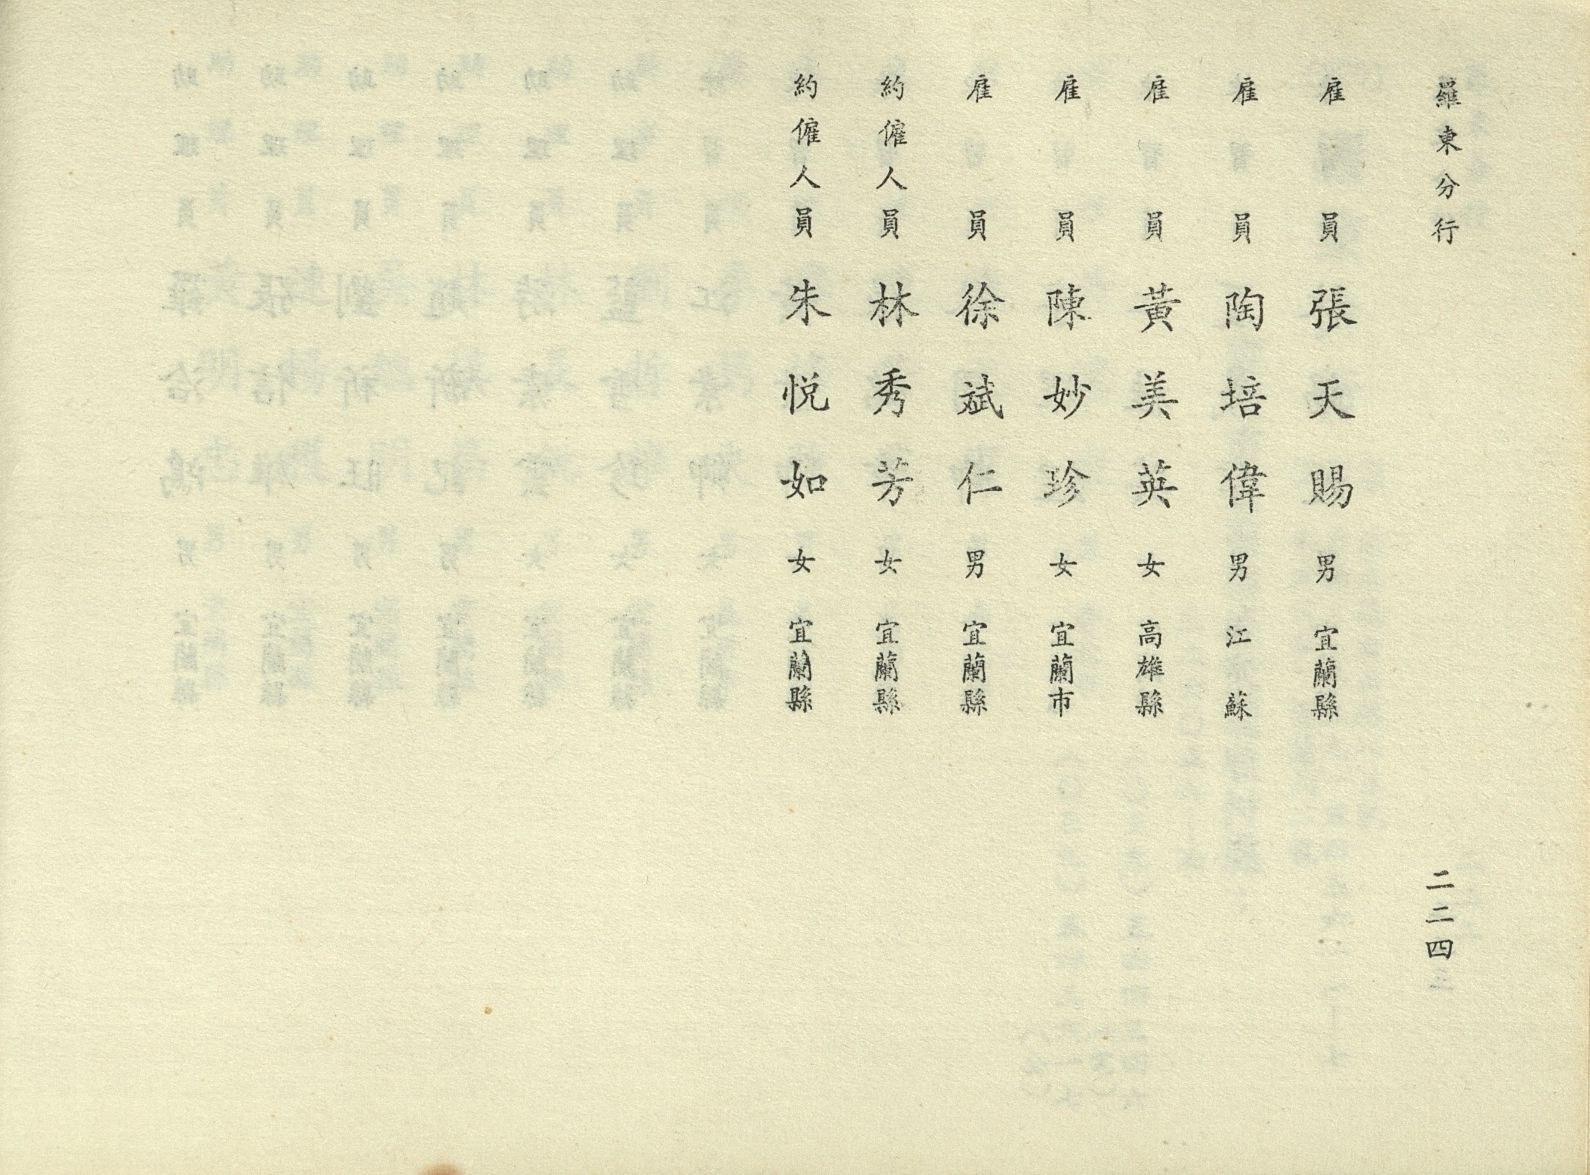 羅東分行
二二四
雇員 張天賜 男 宜蘭縣
雇員 陶培偉 男 江蘇
雇員 黃美英 女 高雄縣
雇員 陳妙珍 女 宜蘭市
雇員 徐斌仁 男 宜蘭縣
約僱人員 林秀芳 女 宜蘭縣
約僱人員 朱悅如 女 宜蘭縣